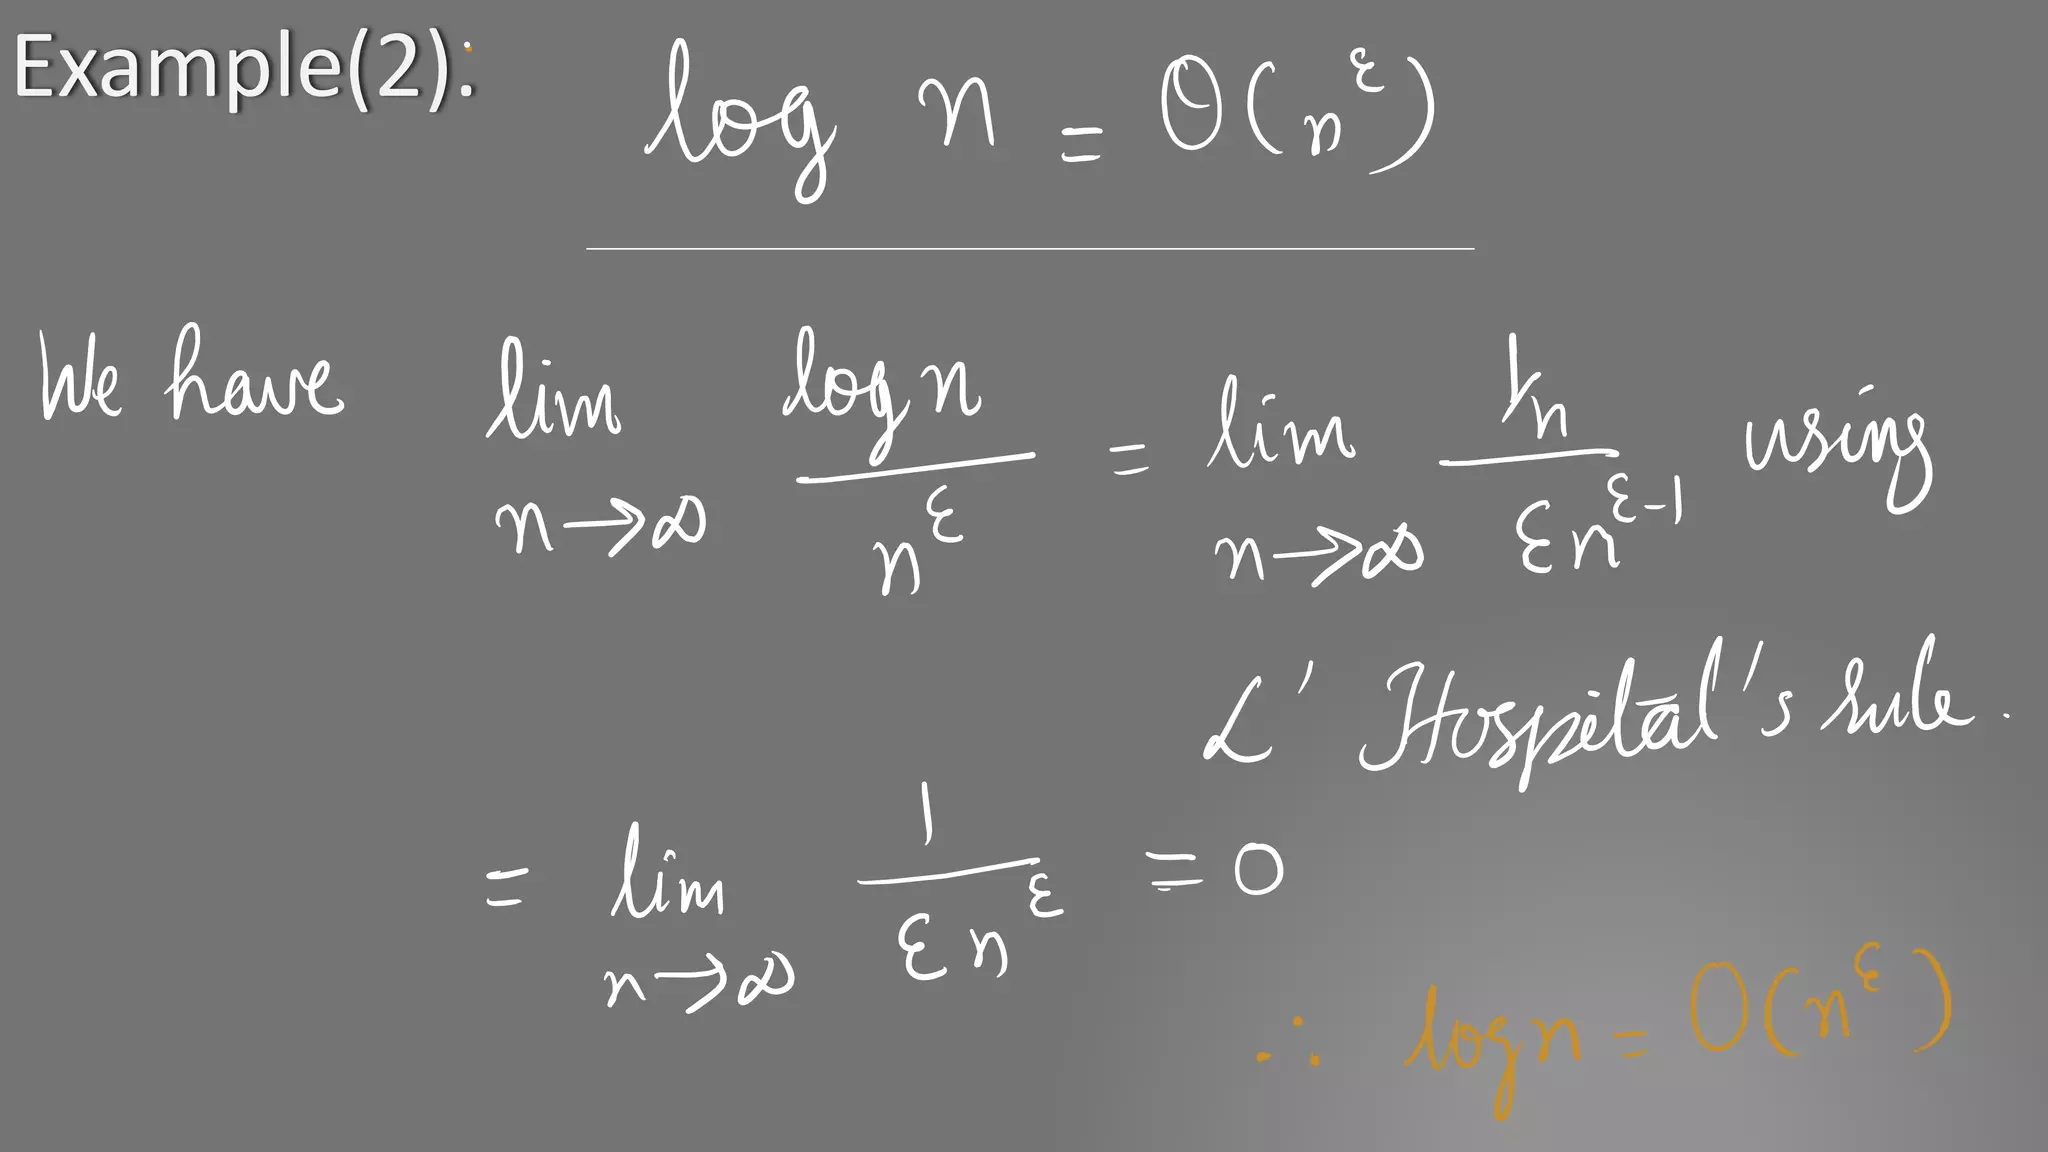 Example(2):
log n = O(n^ε)
We have lim n→∞ log n / n^ε = lim n→∞ 1/n / εn^(ε-1) using
L'Hospitāl's rule.
= lim n→∞ 1 / εn^ε = 0
∴ log n = O(n^ε)